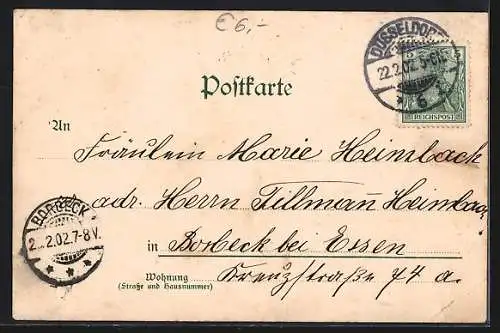 € 6,-
DÜSSELDORF
22.2.02. 5-6N.
* 6 z
5 5
REICHSPOST
Postkarte
An
Fräulein Marie Heimbach
adr. Herrn Tillmann Heimbach
in Borbeck bei Essen
BORBECK
2...2.02.7-8V.
* * *
Wohnung
(Straße und Hausnummer)
Kreuzstraße 74 a.